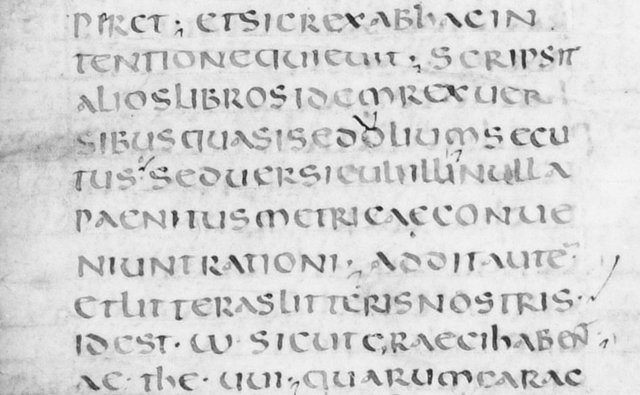 PIRET ; ET SIC REX AB hAC IN
TENTIONE QUIEUIT ; SCRIPSIT
ALIOS LIBROS IDEM REX UER
SIBUS QUASI SEDOLIUM SECU
TUS ; SED UERSICULI ILLI NULLA
PAENITUS METRICAE CONUE
NIUNT RATIONI ; ADDIT AUTE ̅
ET LITTERAS LITTERIS NOSTRIS ·
ID EST · ω · SICUT GRAECI hABEN̅ ;
AE · the · uui ; QUARUM CARAC